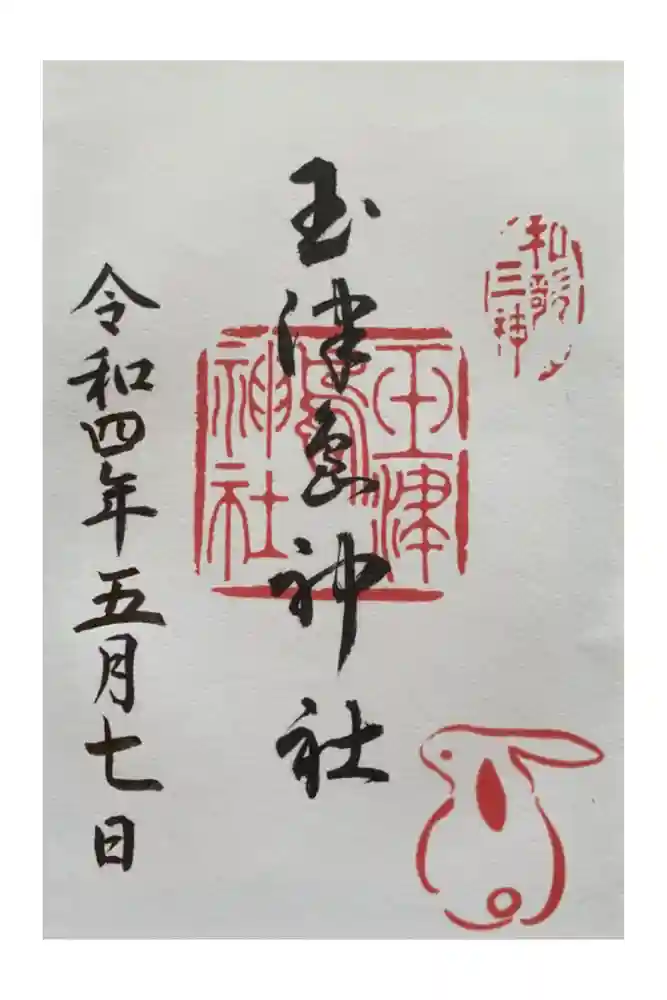 和歌
三神
玉津島神社
玉津
島
神社
令和四年五月七日